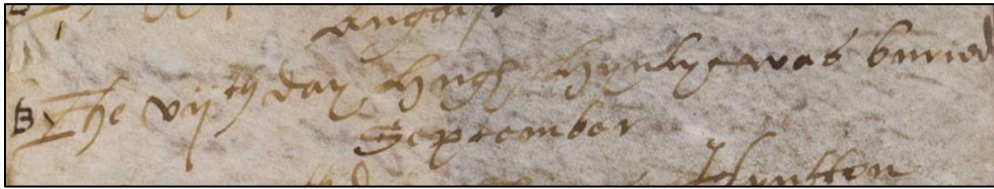 August
B The vijth day Hugh Hynly was buried
September
Hyntton